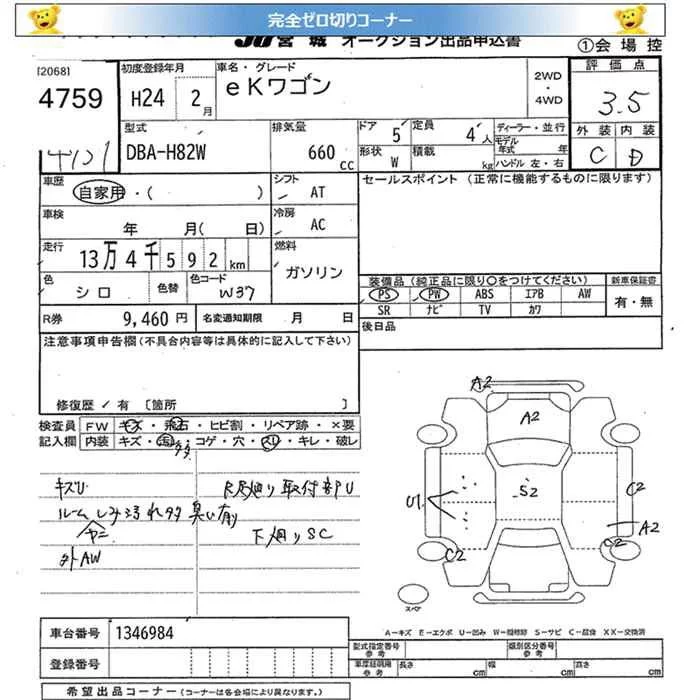 完全ゼロ切りコーナー
JU 宮城 オークション出品申込書 ①会場控
[2068]
4759
初度登録年月
H24 2月
車名・グレード
eKワゴン
2WD・4WD
評価点
3.5
外装 内装
C D
型式
DBA-H82W
排気量
660cc
ドア 5
定員 4人
形状 W
積載 kg
ディーラー・並行
モデル年式 年
ハンドル 左・右
車歴
自家用・( )
シフト
AT
セールスポイント (正常に機能するものに限ります)
車検
年 月( 日)
冷房
AC
走行
13万4千592km
燃料
ガソリン
色
シロ
色替
色コード
W37
装備品 (純正品に限り○をつけてください) 新車保証書
PS PW ABS エアB AW 有・無
SR ナビ TV カワ
R券 9,460円 名変通知期限 月 日
後日品
注意事項申告欄(不具合内容等は具体的に記入して下さい)
修復歴/有 〔箇所
検査員記入欄
FW キズ・飛石・ヒビ割・リペア跡・×要
内装 キズ・汚・コゲ・穴・スレ・キレ・破レ
キズU
取付部U
ルームしみ汚れタタ 臭い有
ヤニ
下廻りSC
外AW
A2
A2
U1
S2
C2
A2
C2
C2
スペア
A−キズ E−エクボ U−凹み W−補修跡 S−サビ C−腐食 XX−交換済
車台番号 1346984
登録番号
型式指定番号 参考
類別区分番号 参考
車庫証明用 参考 長さ cm 幅 cm 高さ cm
希望出品コーナー (コーナーは各会場により異なります。)